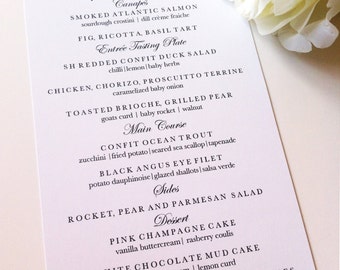 Canapés
SMOKED ATLANTIC SALMON
sourdough crostini | dill crème fraîche
FIG, RICOTTA, BASIL TART
Entrée Tasting Plate
SHREDDED CONFIT DUCK SALAD
chilli|lemon|baby herbs
CHICKEN, CHORIZO, PROSCUITTO TERRINE
caramelized baby onion
TOASTED BRIOCHE, GRILLED PEAR
goats curd | baby rocket
Main Course
CONFIT OCEAN TROUT
zucchini |fried potato|seared sea scallop|tapenade
BLACK ANGUS EYE FILET
potato dauphinoise|glazed shallots|salsa verde
Sides
ROCKET, PEAR AND PARMESAN SALAD
Dessert
PINK CHAMPAGNE CAKE
vanilla buttercream| rasberry coulis
WHITE CHOCOLATE MUD CAKE
lemon curd